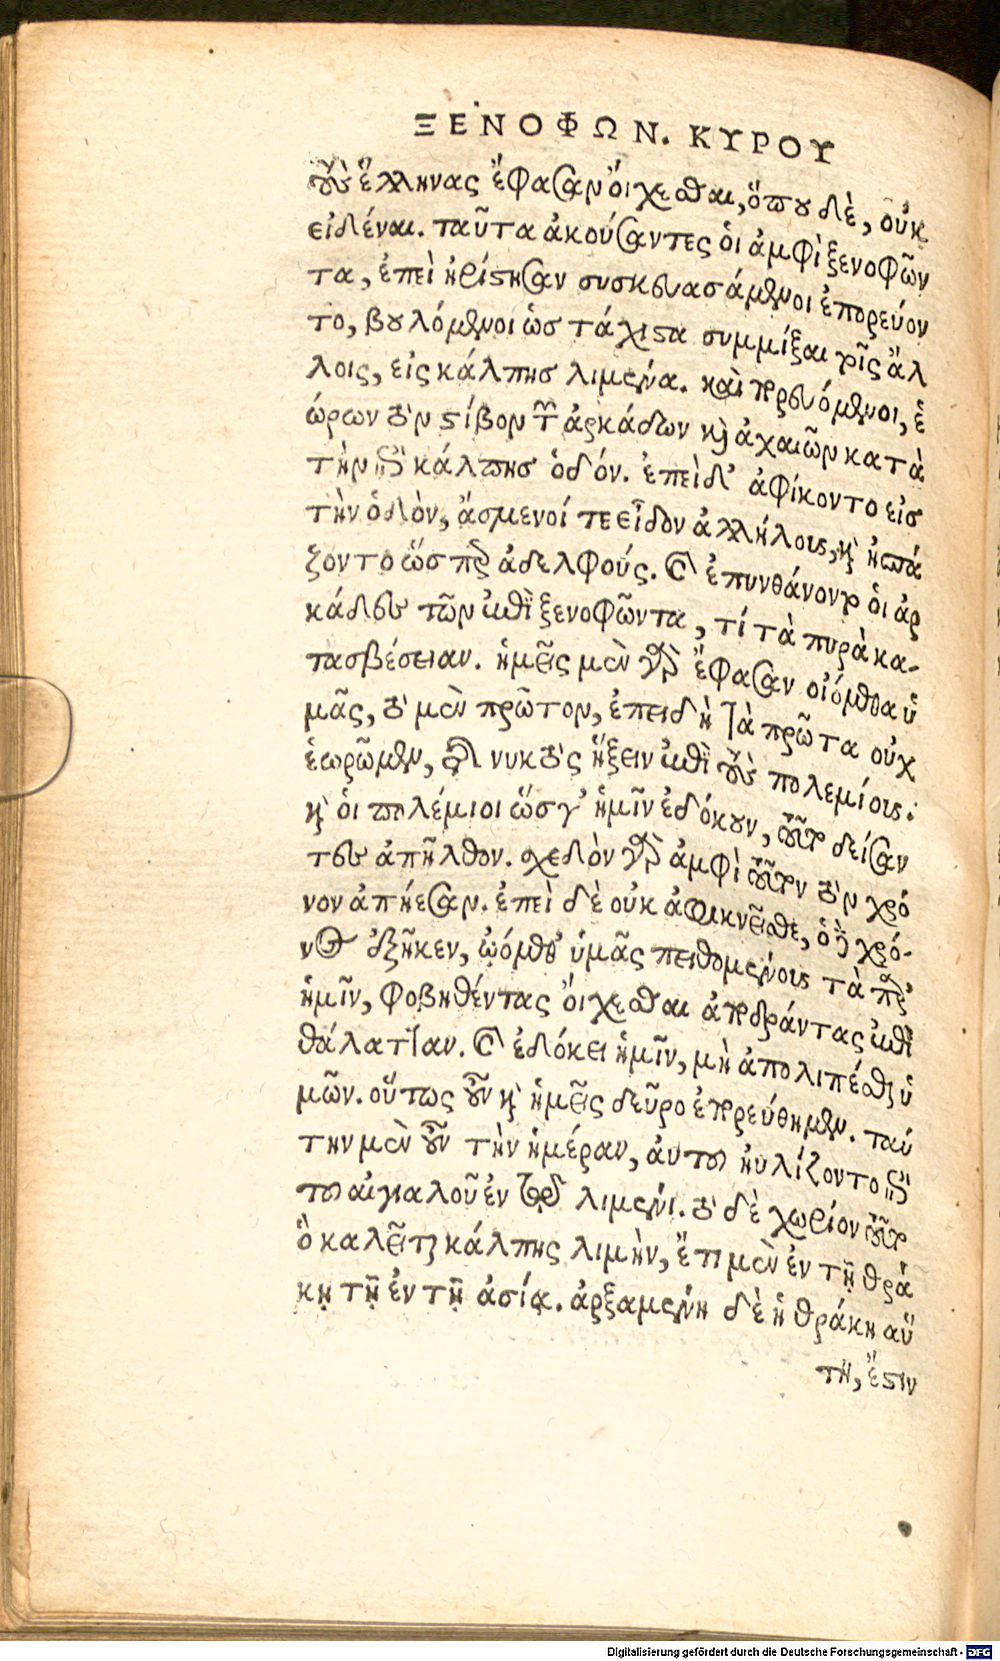 ΞΕΝΟΦΩΝ. ΚΥΡΟΥ
τοὺς ἕλληνας ἔφασαν οἴχεσθαι, ὅπου δὲ, οὐκ
εἰδέναι. ταῦτα ἀκούσαντες ὁι ἀμφὶ ξενοφῶν
τα, ἐπεὶ ἠρίστησαν συσκευασάμενοι ἐπορεύον
το, βουλόμενοι ὡς τάχιστα συμμίξαι τοῖς ἄλ
λοις, εἰς κάλπης λιμένα. καὶ πορευόμενοι, ἑ
ώρων τὸν στίβον τῶν ἀρκάδων καὶ ἀχαιῶν κατὰ
τὴν ἐπὶ κάλπης ὁδόν. ἐπεὶ δ' ἀφίκοντο εἰς
τὴν ὁδὸν, ἄσμενοί τε εἶδον ἀλλήλους, καὶ ἠσπά
ζοντο ὥσπερ ἀδελφούς. καὶ ἐπυνθάνοντο ὁι ἀρ
κάδες τῶν περὶ ξενοφῶντα, τί τὰ πυρὰ κα-
τασβέσειαν. ἡμεῖς μὲν γὰρ ἔφασαν οἰόμεθα ὑ
μᾶς, τὸ μὲν πρῶτον, ἐπειδὴ τὰ πρῶτα οὐχ
ἑωρῶμεν, διὰ νυκτὸς ἥξειν ἐπὶ τοὺς πολεμίους:
καὶ ὁι πολέμιοι ὥς γ' ἡμῖν ἐδόκουν, τοῦτο δείσαν
τες ἀπῆλθον. σχεδὸν γὰρ ἀμφὶ τοῦτον τὸν χρό
νον ἀπῄεσαν. ἐπεὶ δὲ οὐκ ἀφικνεῖσθε, ὁ δὲ χρό-
νος ἐξῆκεν, ᾠόμεθα ὑμᾶς πειθομένους τὰ παρ'
ἡμῖν, φοβηθέντας οἴχεσθαι ἀποδράντας ἐπὶ
θάλατταν. καὶ ἐδόκει ἡμῖν, μὴ ἀπολιπέσθαι ὑ
μῶν. οὕτως οὖν καὶ ἡμεῖς δεῦρο ἐπορεύθημεν. ταύ
την μὲν οὖν τὴν ἡμέραν, ἀυτοῦ ηὐλίζοντο ἐπὶ
τοῦ αἰγιαλοῦ ἐν τῷ λιμένι. τὸ δὲ χωρίον τοῦτο
ὃ καλεῖται κάλπης λιμὴν, ἔτι μὲν ἐν τῇ θρά
κῃ τῇ ἐν τῇ ἀσίᾳ. ἀρξαμένη δὲ ἡ θράκη αὕ
τη, ἔστιν
Digitalisierung gefördert durch die Deutsche Forschungsgemeinschaft - DFG